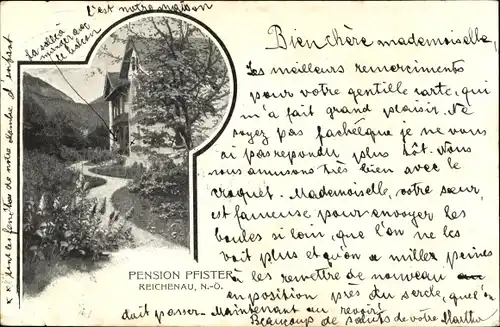 C'est notre maison
La salle à manger avec le balcon
x sind les fenêtres de notre chambre d'enfant
PENSION PFISTER
REICHENAU, N.-Ö.
Bien chère mademoiselle,
Les meilleurs remerciments
pour votre gentille carte, qui
m'a fait grand plaisir. Ne
soyez pas fachée que je ne vous
ai pas repondu plus tôt. Nous
nous amusons très bien avec le
croquet. Mademoiselle, votre sœur,
est fameuse pour envoyer les
boules si loin, que l'on ne les
voit plus et qu'on a milles peines
à les remettre de nouveau
en position près du cercle, que l'on
doit passer. Maintenant au revoir
Beaucoup de saluts de votre Martha